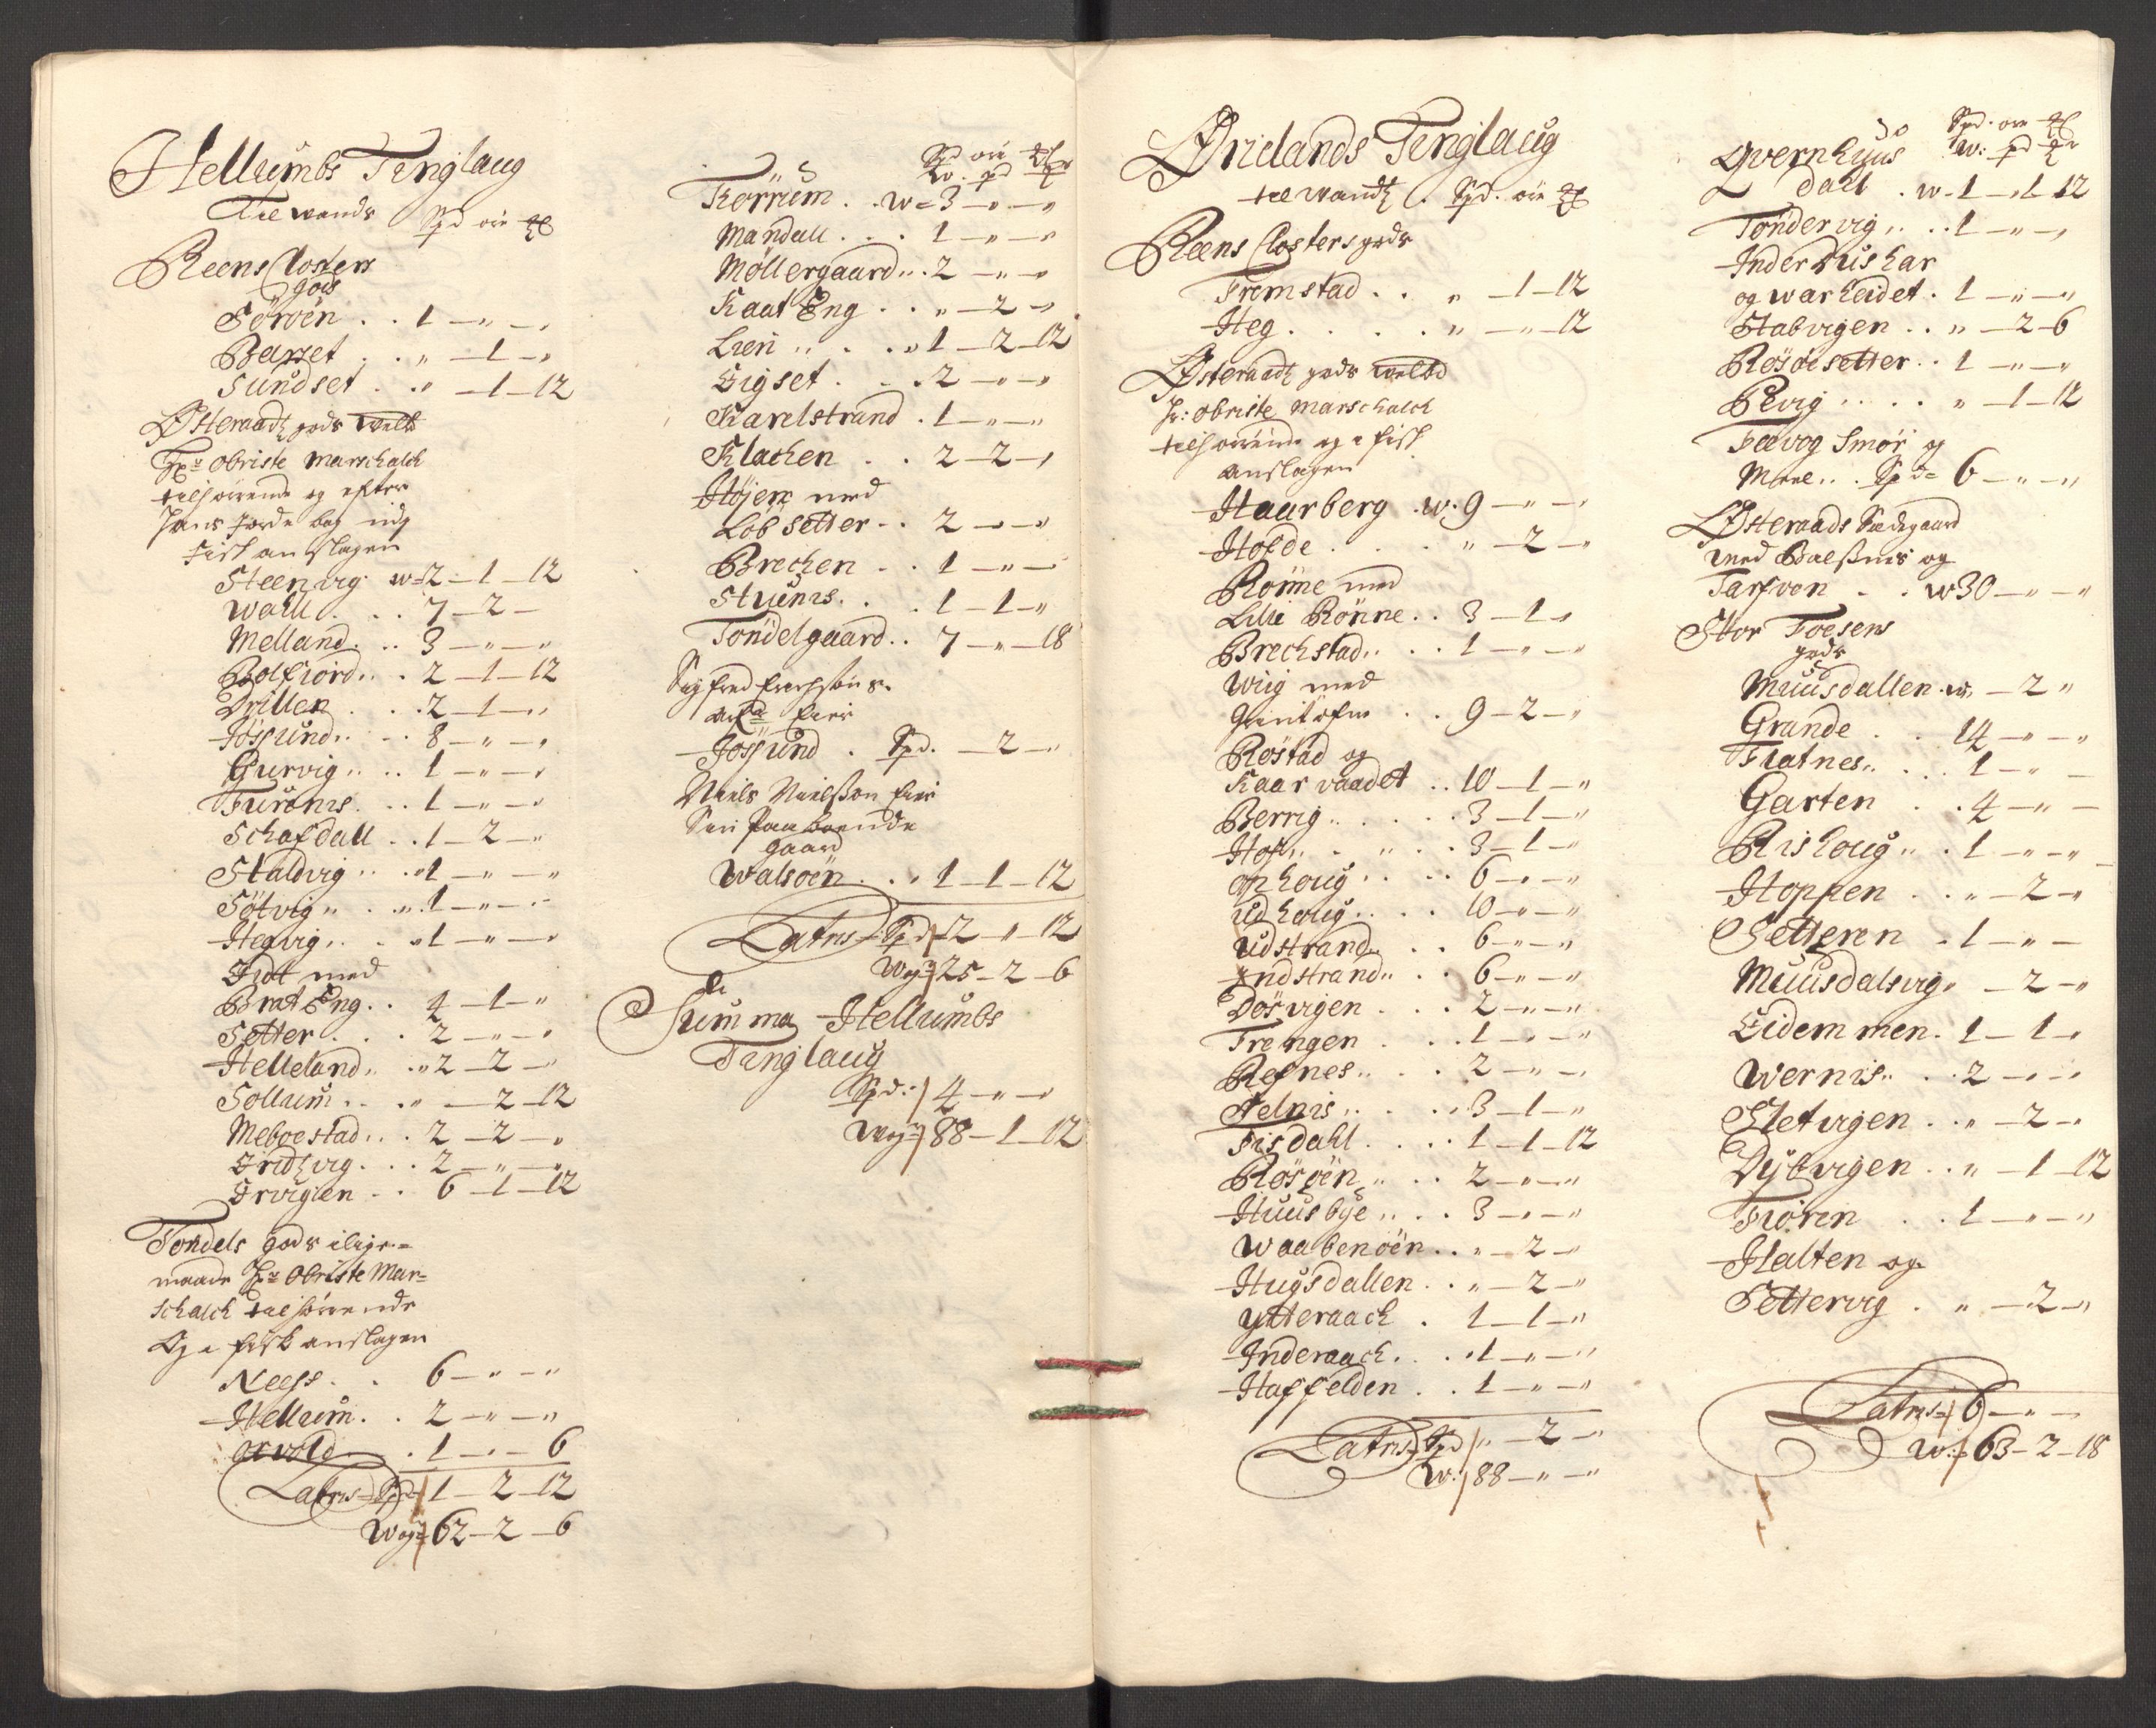 Hellumbs Tinglaug
Til wands Spd ore
Reens Closters
gods
Söröen . . 1 – " – "
Basset . . " – 1 – "
Sundset . . " – 1 – 12
Østeraadz gods
Hr: Obriste Marschalch
tilhörende og efter
hans Jorde bog udj
Fisk anslagen
Steenvig w=2 – 1 – 12
Wall . . . 7 – 2 –
Melland . . 3 – " – "
Bolfiord . . 2 – 1 – 12
Drillen . . 2 – 1 – "
Jössund . . 8 – " – "
Gurvig . . 1 – " – "
Furönis . . 1 – " – "
Schafdall . . 1 – 2 – "
Staldvig . . 1 – " – "
Sötvig . . 1 – " – "
Hegvig . . 1 – " – "
Oldt med
Brat Eng . . 4 – 1 – "
Setter . . 2 – " – "
Helleland . . 2 – 2 – "
Sollum . . " – 2 – 12
Meboestad . . 2 – 2 – "
Fridzvig . . . 2 – " – "
Orvigien . . 6 – 1 – 12
Töndels gods ilige=
maade Hr: Obriste Mar=
schalch tilhörende
Og i fisk anslagen
Neess . . 6 – " – "
Hellum . . 2 – " – "
Arvold . 1 – " – 6
Latris= Spd= 1 – 2 – 12
Wog= 62 – 2 – 6
Spd ore
W. pd
Körrium . . w=3 – " – "
Mandall . . . 1 – " – "
Möllergaard . . 2 – " – "
Kaat Eng . . " – 2 – "
Lien . . . 1 – 2 – 12
Eigset . . . 2 – " – "
Karelstrand . 1 – " – "
Klachen . . 2 – 2 – "
Höjen med
Löbsetter . . 2 – " – "
Brechen . . 1 – " – "
Stuenis . . . 1 – 1 – "
Töndelgaard . . 7 – " – 18
Sigfred
Jössund . Spd. – 2 – "
Niels Nielsson Eier
Sin Paaboende
Gaard
Walsöen . . 1 – 1 – 12
Latris= Spd 2 – " – 12
Wog= 25 – 2 – 6
Summa Hellumbs
Tinglaug
Spd: 4 – " – "
Wog= 88 – 1 – 12
Ørelands Tinglaug
til wandz . Spd. ore
Reens Closters gods
Fremstad . . " – 1 – 12
Heg . . . . " – " – 12
Østeraadz gods
Hr: Obriste Marschalch
tilhörende og i fisk
anslagen
Haarberg . w. 9 – " – "
Hofde . . . " – 2 – "
Rönne med
Lille Rönne . . 3 – 1 – "
Brechstad . . . 1 – " – "
Wiig med
. . 9 – 2 – "
Röstad og
Kaarvaadet . . 10 – 1 – "
Berrig . . . . 3 – 1 – "
Hof . . " . . 3 – 1 – "
Ophoug . . . 6 – " – "
Udhoug . . . 10 – " – "
Udstrand . . 6 – " – "
Indstrand . . 6 – " – "
Dösvigen . . . 2 – " – "
Frengen . . . 1 – " – "
Refnes . . . 2 – " – "
Selnis . . . 3 – 1 – "
Fisdahl . . . 1 – 1 – 12
Rösöen . . . 2 – " – "
Huusbye . . . 3 – " – "
Waabenöen . . " – 2 – "
Hugsdallen . . " – 2 – "
Ytteraach . 1 – 1 – "
Inderaach . . . 1 – " – "
Haffelden . . 1 – " – "
Latris Spd " – 2 – "
W: 88 – " – "
Spd. ore
Qvernhuus W: pd
dahl . w–1 – 1 – 12
Töndervig . . . 1 – " – "
Inder Duishar
og Warheidet . 1 – " – "
Stabvigen . . " – 2 – 6
Rösöesetter . . 1 – " – "
Revig . . . . " – 1 – 12
Fævog Smör og
Meel . . Spd= 6 – " – "
Østeraads Sædegaard
med Balssnis og
Tarfven . . w 30 – " – "
Stor Foesens
gods
Muusdallen . w. – 2 – "
Grande . . 14 – " – "
Flatnes . . . 1 – " –
Garten . . 4 – " –
Rishoug . . 1 – " – "
Hoppen . . " – 2 – "
Setteren . 1 – " –
Muusdalsvig " – 2 – "
Eidem men . 1 – 1 – "
Wernis . . . 2 – " – "
Sletvigen . . " – 2 – "
Dybvigen . . " – 1 – 12
Fiören . . 1 – " – "
Halten og
Settervig . " – 2 – "
Latris= 6 – " –
W: 63 – 2 – 18